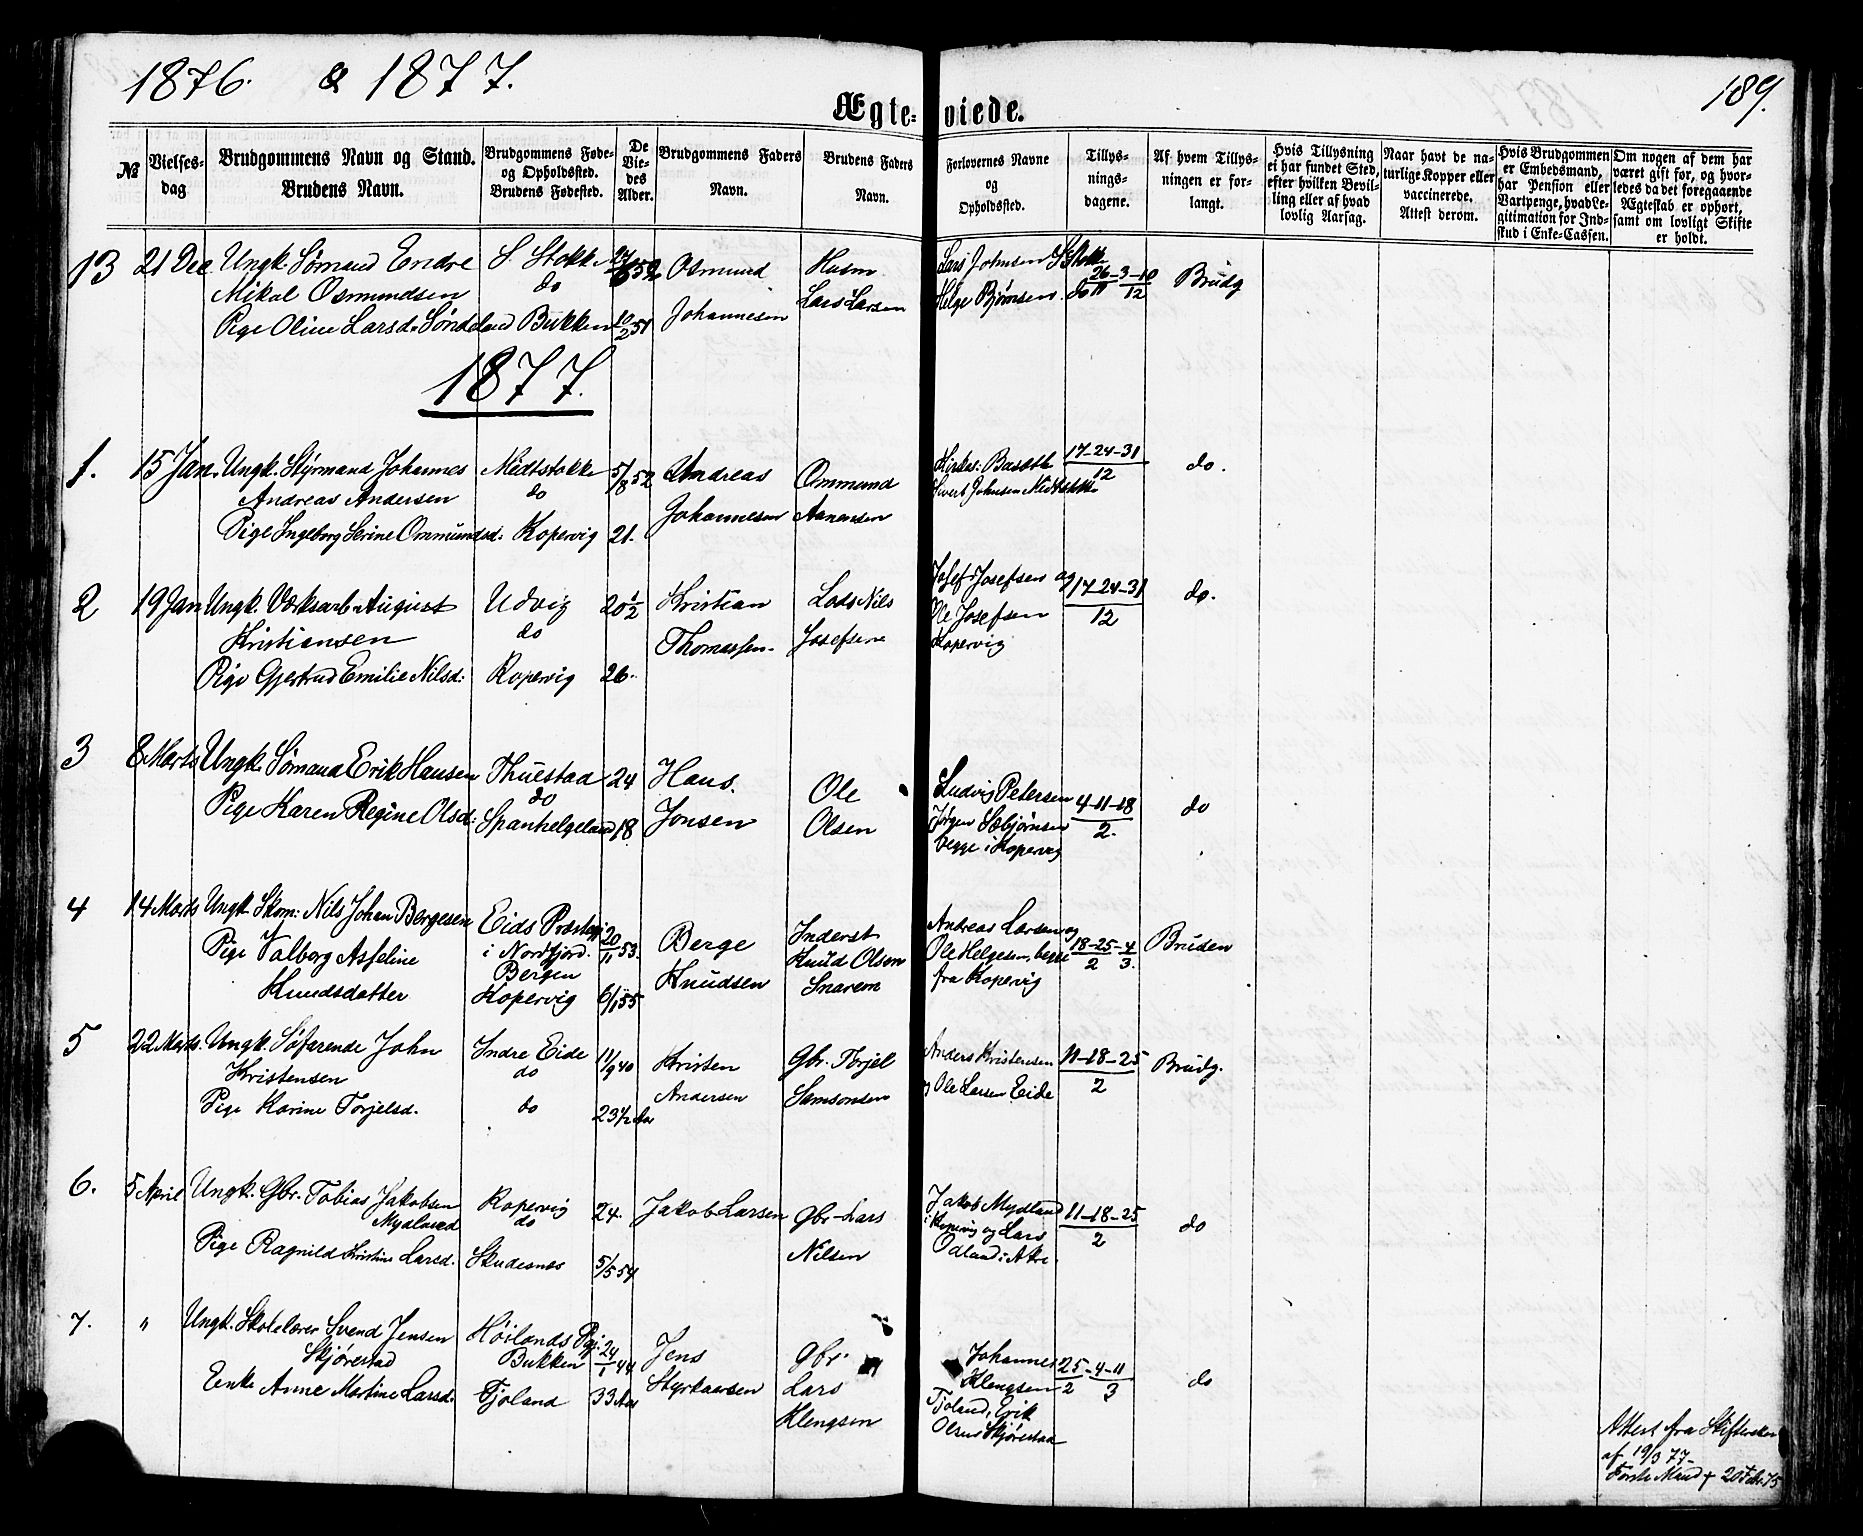 1876. & 1877.
189.
Ægte=viede.
№
Vielses-
dag
Brudgommens Navn og Stand.
Brudens Navn.
Brudgommens Føde-
og Opholdssted.
Brudens Fødested.
De
Vie-
des
Alder.
Brudgommens Faders
Navn.
Brudens Faders
Navn.
Forlovernes Navne
og
Opholdssted.
Tillys-
nings-
dagene.
Af hvem Tillys-
ningen er for-
langt.
Hvis Tillysning
ei har fundet Sted,
efter hvilken Bevil-
ling eller af hvad
lovlig Aarsag.
Naar havt de na-
turlige Kopper eller
vaccinerede.
Attest derom.
Hvis Brudgommen
er Embedsmand,
har Pension eller
Vartpenge, hvad Le-
gitimation for Ind-
skud i Enke-Cassen.
Om nogen af dem har
været gift før, og hvor-
ledes da det foregaaende
Ægteskab er ophørt,
samt om lovligt Skifte
er holdt.
13 21 Dec Ungk. Sømand Endre
Mikal Osmundsen
Pige Oline Larsd. Sønd
S. Stokke
do
Bukken 10/2 51
Osmund
Johannesen
Husm
Lars Larsen
Lars Johnsen S Stokk
Helge Bjørnsen do
26-3-10
11 12
Brudg
1877.
1. 15 Jan. Ungk. Styrmand Johannes
Andreas Andersen
Pige Ingeborg Serine Ommundsd.
Medtstokke 5/8 52
do
Kopervig 21.
Andreas
Johannesen
Ommund
Aanensen
Sivert Johnsen Midtstokke
17-24-31
12
do.
2 19 Jan Ungk. Værksarb. August
Kristiansen
Pige Gjertrud Emilie Nilsd.
Udvig 20 1/2
do
Kopervig 26.
Kristian
Thomassen.
Lods Nils
Josefsen
Josef Josefsen og
Ole Josefsen
Kopervig
17-24-31
12
do.
3 8 Marts Ungk. Sømand Erik Hansen
Pige Karen Regine Olsd.
Thuestad 24
do
Spanhelgeland 18
Hans.
Jonsen
Ole
Olsen
Ludvig Petersen
Jørgen Asbjørnsen
begge i Kopervig
4-11-18
2.
do
4 14 Marts Ungk Skom: Nils Johan Bergesen
Pige Valborg Asseline
Knudsdatter
Eids Præstegj
i Nordfjord.
Bergen
Kopervig
20/11 53.
6/1 55
Berge
Knudsen
Inderst
Knud Olsen
Snarem
Andreas Larsen og
Ole Helgesen, begge
fra Kopervig
18-25-4
2 3.
Bruden
5 22 Marts. Ungk. Søfarende John
Kristensen
Pige Karine Torjelsd.
Indre Eide 11/9 40
do
do 23 1/2 Aar
Kristen
Andersen
Gbr. Torjel
Samsonsen
Anders Kristensen
og Ole Larsen Eide
11-18-25
2
Brudg.
6. 5 April Ungk. Gbr. Tobias Jakobsen
Mydland
Pige Ragnild Kristine Larsd.
Kopervig 24.
do
Skudesnæs 5/5 54
Jakob Larsen
Gbr. Lars
Nilsen
Jakob Mydland
i Kopervig og Lars
Odland i Akre.
11-18-25
2
do
7. " Ungk. Skolelærer Svend Jensen
Skjørestad
Enke Anne Martine Larsd.
Høilands Pgj.
Bukken
Tjoland
24/1 44
33 Aar
Jens
Styrkaarsen
Gbr.
Lars
Klengsen
Johannes
Klengsen
Tjoland, Erik
Olsen Skjørestad
25-4-11
2 3
do
Attest fra Skifteretten
af 19/3 77-
Første Mand † 20 Febr. 75